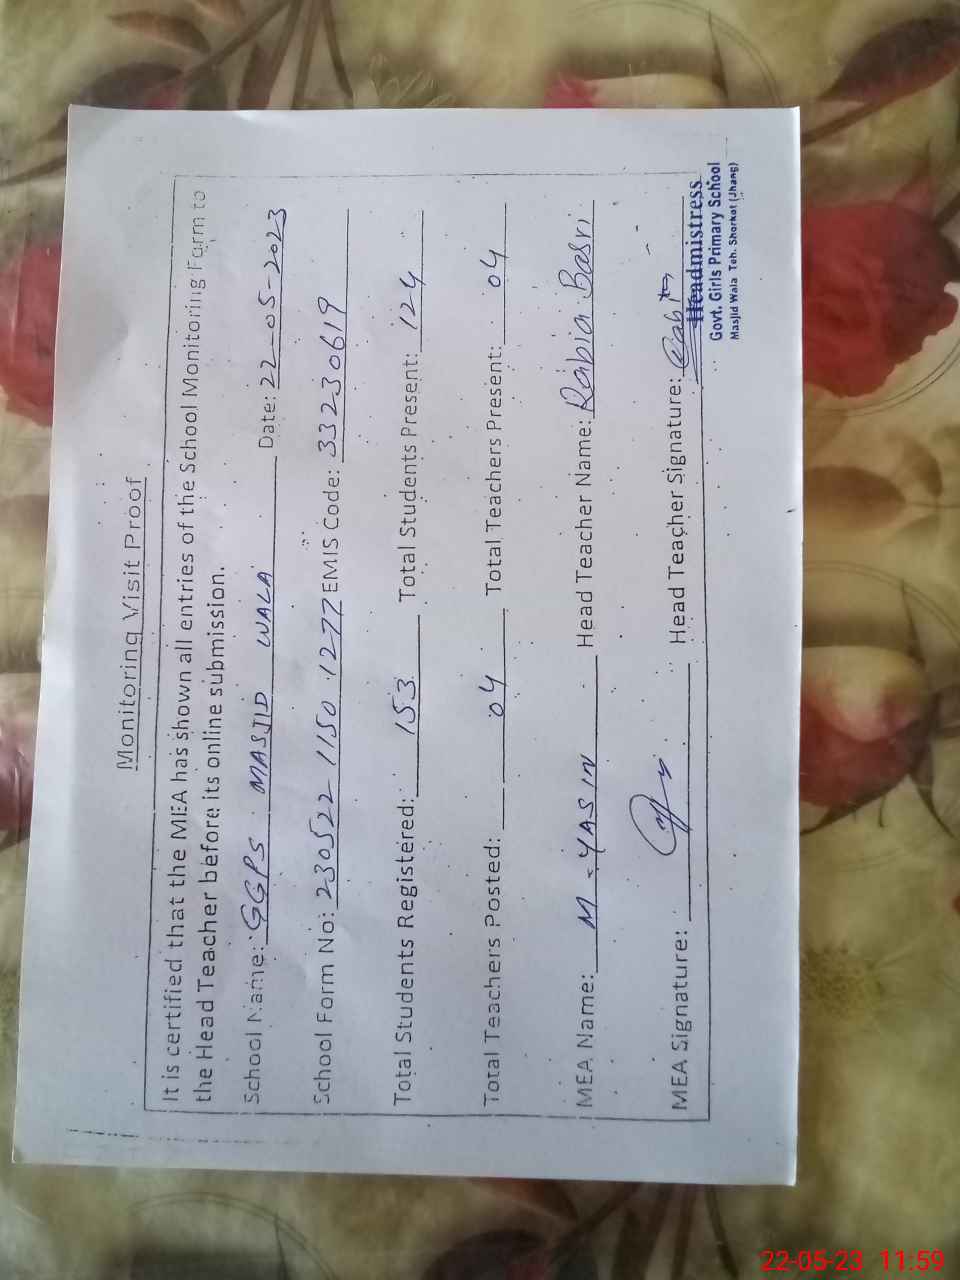 Monitoring Visit Proof
It is certified that the MEA has shown all entries of the School Monitoring Form to
the Head Teacher before its online submission.
School Name: GGPS MASJID WALA Date: 22-05-2023
School Form No: 230522 1150 1277 EMIS Code: 33230619
Total Students Registered: 153 Total Students Present: 124
Total Teachers Posted: 04 Total Teachers Present: 04
MEA Name: M. YASIN Head Teacher Name: Rabia Basri
MEA Signature: Head Teacher Signature:
Headmistress
Govt. Girls Primary School
Masjid Wala Teh. Shorkot (Jhang)
22-05-23 11:59